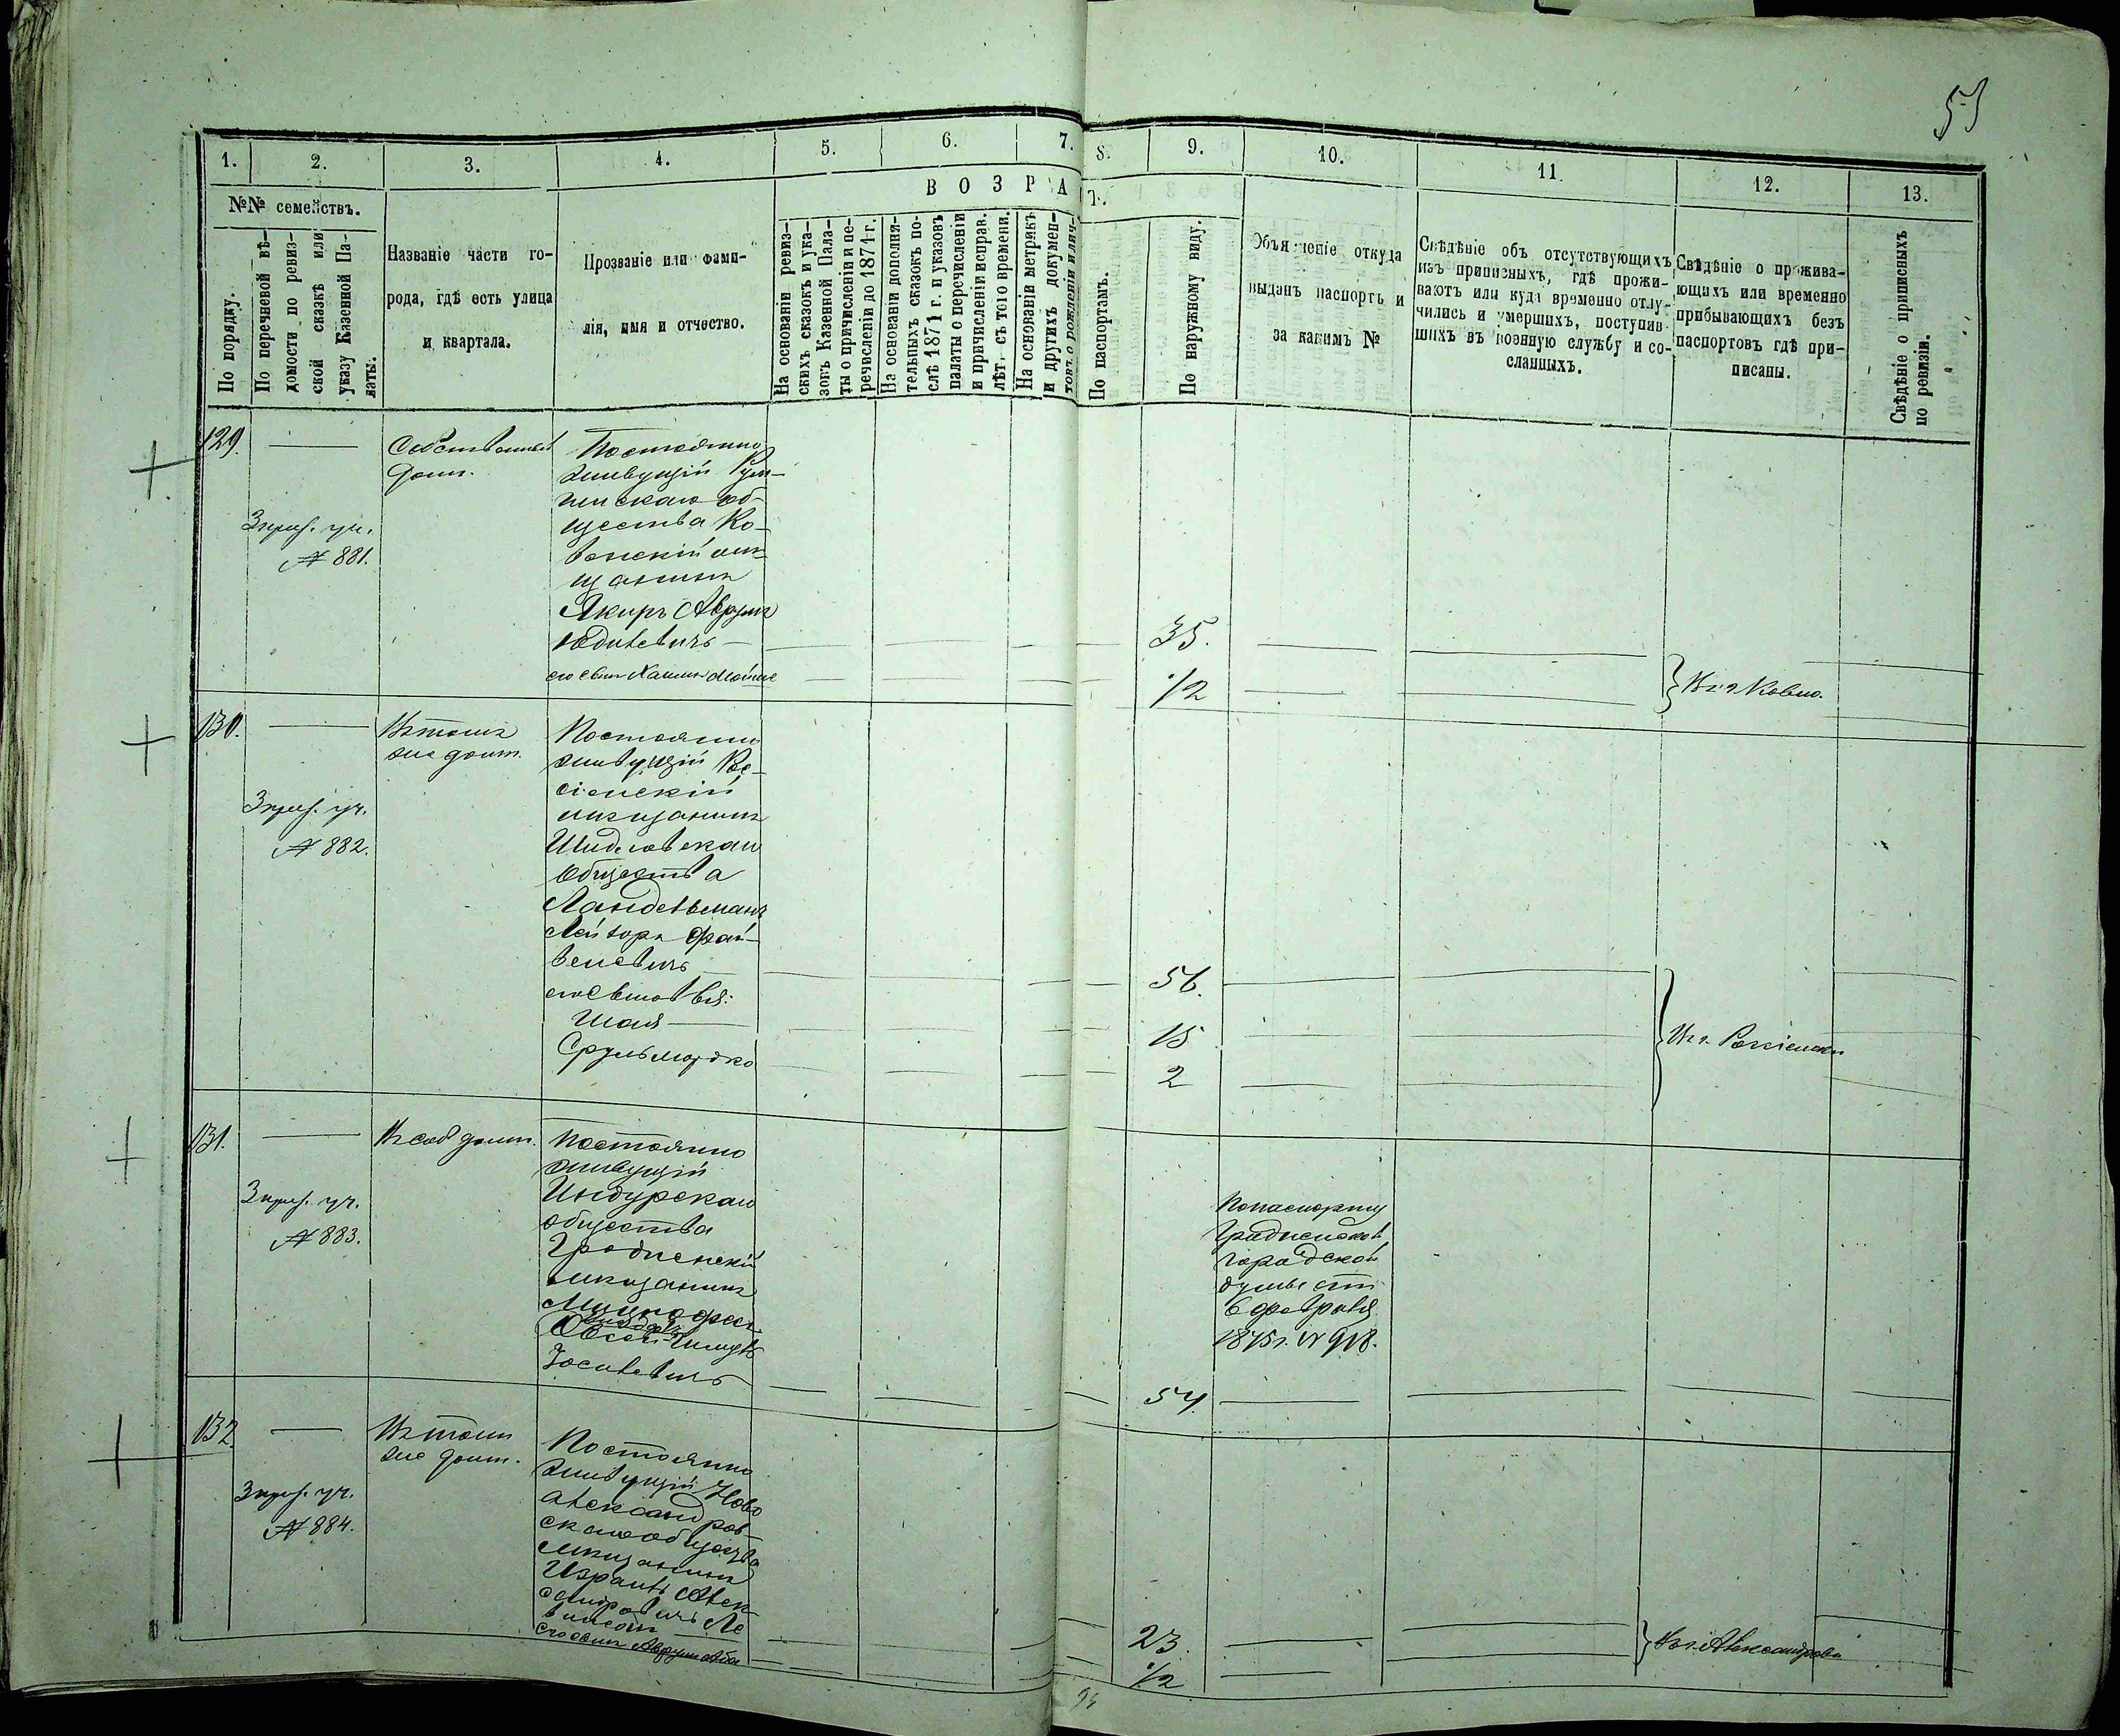 53
1. 2. 3. 4. 5. 6. 7. 8. 9. 10. 11. 12. 13.
№№ семействъ.
По порядку.
По перечневой вѣ-
домости по ревиз-
ской сказкѣ или
указу Казенной Па-
латы.
Названіе части го-
рода, гдѣ есть улица
и квартала.
Прозваніе или фами-
лія, имя и отчество.
ВОЗРАТ.
На основаніи ревиз-
скихъ сказокъ и ука-
зовъ Казенной Пала-
ты о причисленіи и пе-
речисленіи до 1871 г.
На основаніи дополни-
тельныхъ сказокъ по-
слѣ 1871 г. и указовъ
палаты о перечисленіи
и причисленіи исправ.
лѣт. съ того времени.
На основаніи метрикъ
и другихъ докумен-
товъ о рожденіи и лич-
По паспортамъ.
По наружному виду.
Объясненіе откуда
выданъ паспортъ и
за какимъ №
Свѣдѣніе объ отсутствующихъ
изъ приписныхъ, гдѣ прожи-
ваютъ или куда временно отлу-
чились и умершихъ, поступив-
шихъ въ военную службу и со-
сланныхъ.
Свѣдѣніе о прожива-
ющихъ или временно
прибывающихъ безъ
паспортовъ гдѣ при-
писаны.
Свѣдѣніе о приписныхъ
по ревизіи.
129.
3 приз. уч.
№ 881.
Собственный
домъ.
Постоянно
живущій Рум-
шискаго об-
щества Ко-
венскій мѣ-
щанинъ
Якиръ Аврумъ
Юделевичъ
его сынъ
35.
1/2
Въ г. Ковно.
130.
3 приз. уч.
№ 882.
Въ томъ
же домѣ.
Постоянно
живущій Рос-
сіенскій
мѣщанинъ
Шидловскаго
общества
Ландсьманъ
Лейзоръ Фай-
велевичъ
его сыновья:
Шая
Срульмордко
56.
15
2
Въ г. Россіенахъ
131.
3 приз. уч.
№ 883.
Въ соб домѣ.
Постоянно
живущій
Индурскаго
общества
Гродненскій
мѣщанинъ
Іоселевичъ
54
По паспорту
Гродненской
городской
думы отъ
6 февраля
1875 г. № 918.
132.
3 приз. уч.
№ 884.
Въ томъ
же домѣ.
Постоянно
живущій Ново
александров-
скаго общества
мѣщанинъ
Израиль
его сынъ
23.
1/2
Въ г. Александровѣ